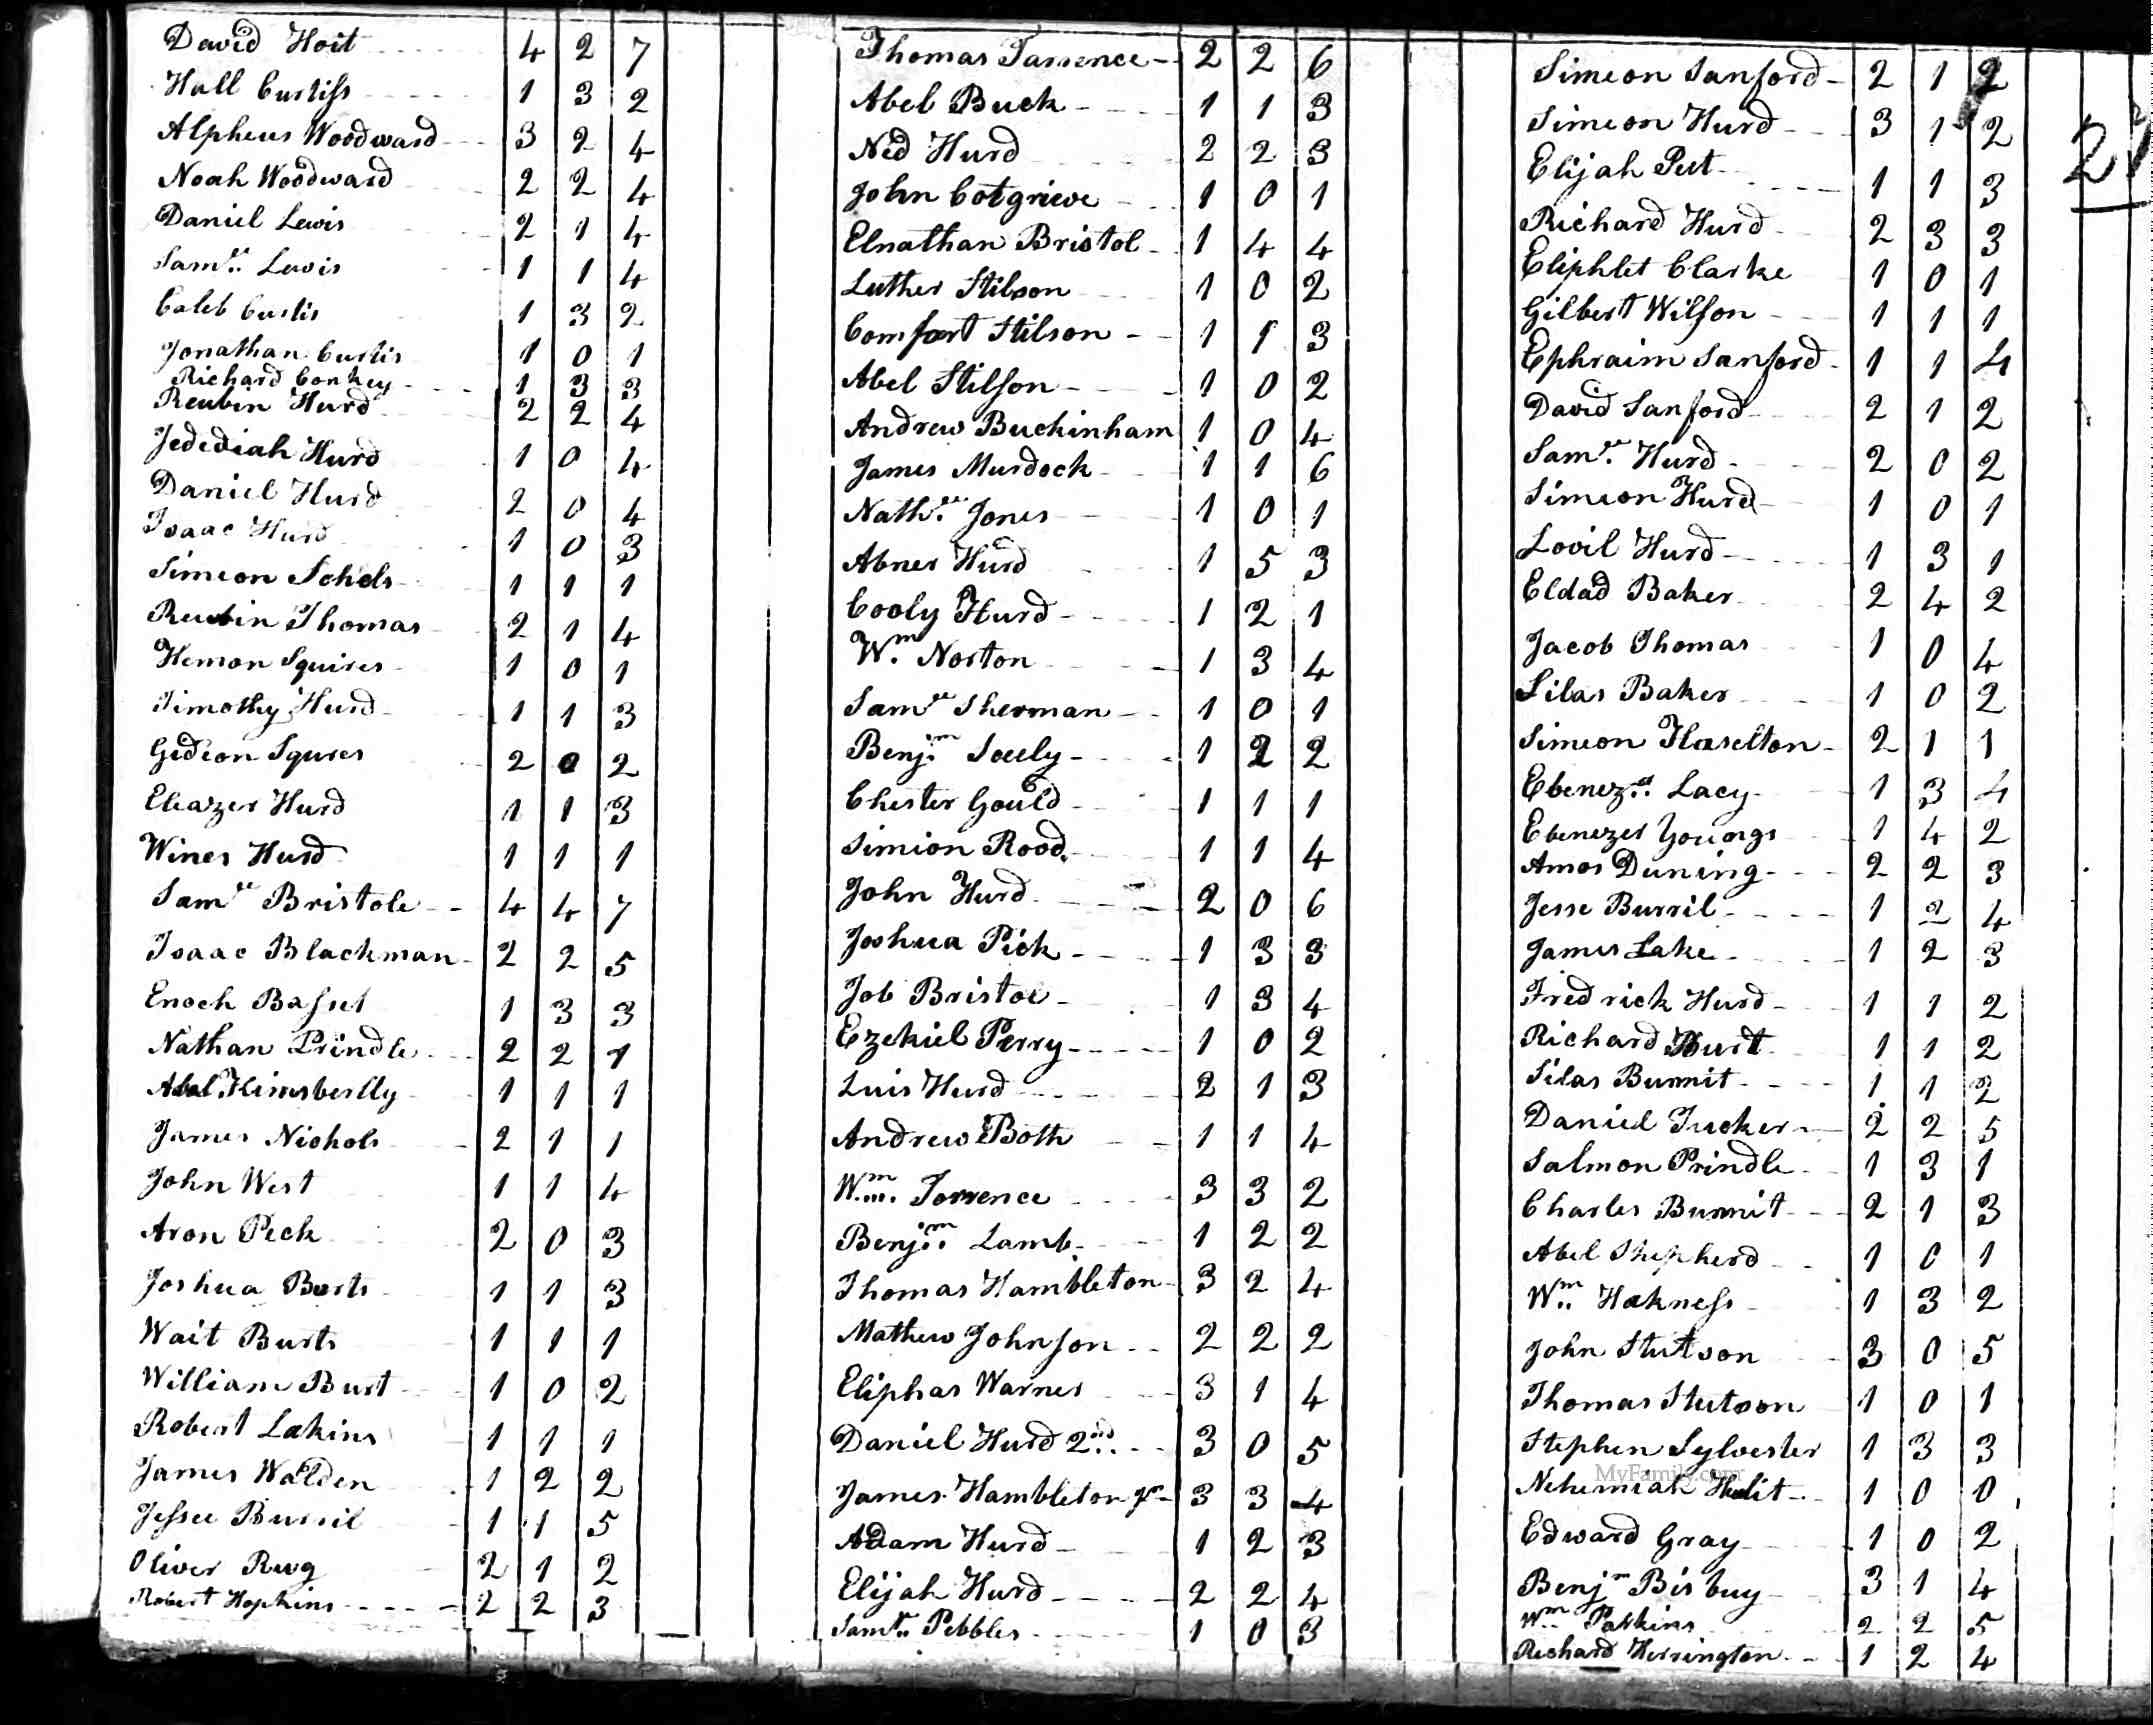 David Hoit 4 2 7
Hull Curtiss 1 3 2
Alpheus Woodward 3 2 4
Noah Woodward 2 2 4
Daniel Lewis 2 1 4
Saml. Lewis 1 1 4
Caleb Curtis 1 3 2
Jonathan Curtis 1 0 1
Richard Conkey 1 3 3
Reubin Hurd 2 2 4
Jedediah Hurd 1 0 4
Daniel Hurd 2 0 4
Isaac Hurd 1 0 3
Simeon 1 1 1
Reubin Thomas 2 1 4
Hemon Squires 1 0 1
Timothy Hurd 1 1 3
Gideon Squires 2 0 2
Eleazer Hurd 1 1 3
Wines Hurd 1 1 1
Saml Bristole 4 4 7
Isaac Blackman 2 2 5
Enoch Bassel 1 3 3
Nathan Prindle 2 2 1
Abel Kimberlly 1 1 1
James Nichols 2 1 1
John West 1 1 4
Aron Peck 2 0 3
Joshua Burts 1 1 3
Wait Burts 1 1 1
William Burt 1 0 2
Robert Lakins 1 1 1
James Walden 1 2 2
Jessee Burril 1 1 5
Oliver 2 1 2
Robert Hopkins 2 2 3
Thomas Tarrence 2 2 6
Abel Buck 1 1 3
Ned Hurd 2 2 3
John Cotgrieve 1 0 1
Elnathan Bristol 1 4 4
Luther Stilson 1 0 2
Comfort Stilson 1 1 3
Abel Stilson 1 0 2
Andrew Buckinham 1 0 4
James Murdock 1 1 6
Nathl. Jones 1 0 1
Abner Hurd 1 5 3
Cooly Hurd 1 2 1
Wm. Norton 1 3 4
Saml Sherman 1 0 1
Benjm. Seely 1 2 2
Chester Gould 1 1 1
Simion Rood 1 1 4
John Hurd 2 0 6
Joshua Pick 1 3 3
Job Bristoe 1 3 4
Ezekiel Perry 1 0 2
Luis Hurd 2 1 3
Andrew Both 1 1 4
Wm. Torrence 3 3 2
Benjm. Lamb 1 2 2
Thomas Hambleton 3 2 4
Mathew Johnson 2 2 2
Eliphas Warner 3 1 4
Daniel Hurd 2nd 3 0 5
James Hambleton Jr 3 3 4
Adam Hurd 1 2 3
Elijah Hurd 2 2 4
Saml. Pebbles 1 0 3
Simeon Sanford 2 1 2
Simeon Hurd 3 1 2
Elijah Peet 1 1 3
Richard Hurd 2 3 3
Eliphlet Clarke 1 0 1
Gilbert Wilson 1 1 1
Ephraim Sanford 1 1 4
David Sanford 2 1 2
Saml. Hurd 2 0 2
Simeon Hurd 1 0 1
Lovil Hurd 1 3 1
Eldad Baker 2 4 2
Jacob Thomas 1 0 4
Silas Baker 1 0 2
Simeon Haselton 2 1 1
Ebenezr. Lacy 1 3 4
Ebenezer Youngs 1 4 2
Amos Duning 2 2 3
Jesse Burril 1 2 4
James Lake 1 2 3
Fredrick Hurd 1 1 2
Richard Burt 1 1 2
Silas Bunnit 1 1 2
Daniel Tucker 2 2 5
Salmon Prindle 1 3 1
Charles Bunnit 2 1 3
Abel Shepherd 1 0 1
Wm. Hakness 1 3 2
John Stutson 3 0 5
Thomas Stutson 1 0 1
Stephen Sylvester 1 3 3
MyFamily.com
Nehemiah 1 0 0
Edward Gray 1 0 2
Benjm Bisbuy 3 1 4
Wm. Parkins 2 2 5
Richard Herrington 1 2 4